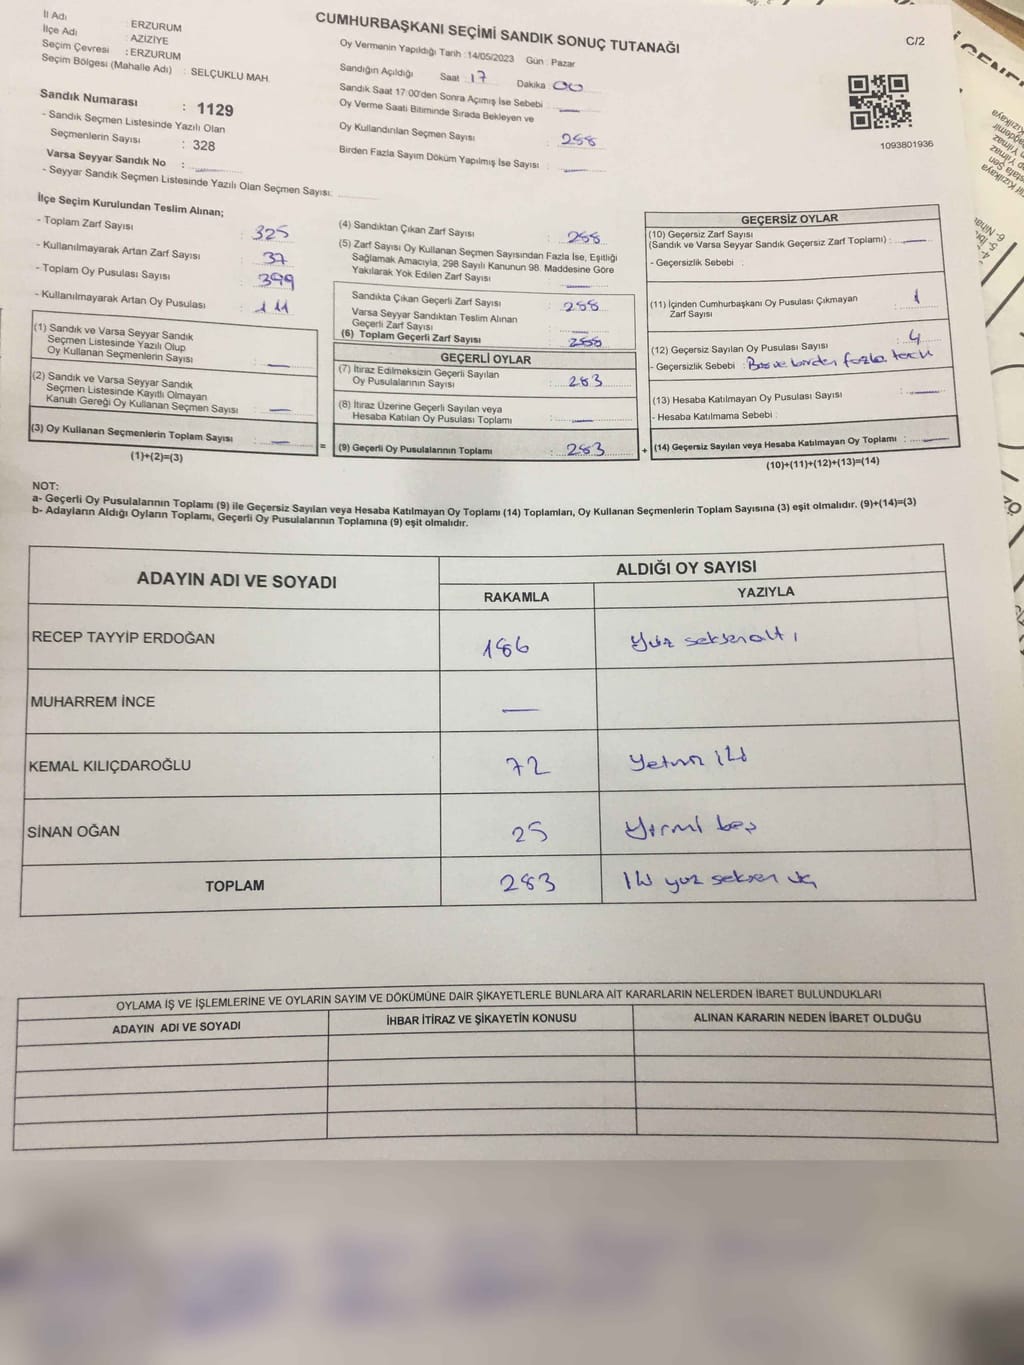 İl Adı : ERZURUM
İlçe Adı : AZİZİYE
Seçim Çevresi : ERZURUM
Seçim Bölgesi (Mahalle Adı) : SELÇUKLU MAH.
CUMHURBAŞKANI SEÇİMİ SANDIK SONUÇ TUTANAĞI
C/2
Oy Vermenin Yapıldığı Tarih :14/05/2023 Gün : Pazar
Sandığın Açıldığı Saat : 17 Dakika : 00
Sandık Saat 17:00'den Sonra Açımış İse Sebebi : —
Oy Verme Saati Bitiminde Sırada Bekleyen ve
Oy Kullandırılan Seçmen Sayısı : 288
Birden Fazla Sayım Döküm Yapılmış İse Sayısı : —
1093801936
Sandık Numarası : 1129
- Sandık Seçmen Listesinde Yazılı Olan
Seçmenlerin Sayısı : 328
Varsa Seyyar Sandık No : —
- Seyyar Sandık Seçmen Listesinde Yazılı Olan Seçmen Sayısı:
İlçe Seçim Kurulundan Teslim Alınan;
- Toplam Zarf Sayısı : 325
- Kullanılmayarak Artan Zarf Sayısı : 37
- Toplam Oy Pusulası Sayısı : 399
- Kullanılmayarak Artan Oy Pusulası : 111
(1) Sandık ve Varsa Seyyar Sandık
Seçmen Listesinde Yazılı Olup
Oy Kullanan Seçmenlerin Sayısı : —
(2) Sandık ve Varsa Seyyar Sandık
Seçmen Listesinde Kayıtlı Olmayan
Kanun Gereği Oy Kullanan Seçmen Sayısı : —
(3) Oy Kullanan Seçmenlerin Toplam Sayısı : —
(1)+(2)=(3)
(4) Sandıktan Çıkan Zarf Sayısı : 288
(5) Zarf Sayısı Oy Kullanan Seçmen Sayısından Fazla İse, Eşitliği
Sağlamak Amacıyla, 298 Sayılı Kanunun 98. Maddesine Göre
Yakılarak Yok Edilen Zarf Sayısı : —
Sandıkta Çıkan Geçerli Zarf Sayısı : 288
Varsa Seyyar Sandıktan Teslim Alınan
Geçerli Zarf Sayısı : —
(6) Toplam Geçerli Zarf Sayısı : 288
GEÇERLİ OYLAR
(7) İtiraz Edilmeksizin Geçerli Sayılan
Oy Pusulalarının Sayısı : 283
(8) İtiraz Üzerine Geçerli Sayılan veya
Hesaba Katılan Oy Pusulası Toplamı : —
= (9) Geçerli Oy Pusulalarının Toplamı : 283
GEÇERSİZ OYLAR
(10) Geçersiz Zarf Sayısı
(Sandık ve Varsa Seyyar Sandık Geçersiz Zarf Toplamı) : —
- Geçersizlik Sebebi :
(11) İçinden Cumhurbaşkanı Oy Pusulası Çıkmayan
Zarf Sayısı : 1
(12) Geçersiz Sayılan Oy Pusulası Sayısı : 4
- Geçersizlik Sebebi : Bos ve birden fazla
(13) Hesaba Katılmayan Oy Pusulası Sayısı : —
- Hesaba Katılmama Sebebi :
+ (14) Geçersiz Sayılan veya Hesaba Katılmayan Oy Toplamı : —
(10)+(11)+(12)+(13)=(14)
NOT:
a- Geçerli Oy Pusulalarının Toplamı (9) ile Geçersiz Sayılan veya Hesaba Katılmayan Oy Toplamı (14) Toplamları, Oy Kullanan Seçmenlerin Toplam Sayısına (3) eşit olmalıdır. (9)+(14)=(3)
b- Adayların Aldığı Oyların Toplamı, Geçerli Oy Pusulalarının Toplamına (9) eşit olmalıdır.
ADAYIN ADI VE SOYADI ALDIĞI OY SAYISI
RAKAMLA YAZIYLA
RECEP TAYYİP ERDOĞAN 186 Yüz seksen altı
MUHARREM İNCE —
KEMAL KILIÇDAROĞLU 72 Yetmiş iki
SİNAN OĞAN 25 Yirmi beş
TOPLAM 283 İki yüz seksen üç
OYLAMA İŞ VE İŞLEMLERİNE VE OYLARIN SAYIM VE DÖKÜMÜNE DAİR ŞİKAYETLERLE BUNLARA AİT KARARLARIN NELERDEN İBARET BULUNDUKLARI
ADAYIN ADI VE SOYADI İHBAR İTİRAZ VE ŞİKAYETİN KONUSU ALINAN KARARIN NEDEN İBARET OLDUĞU